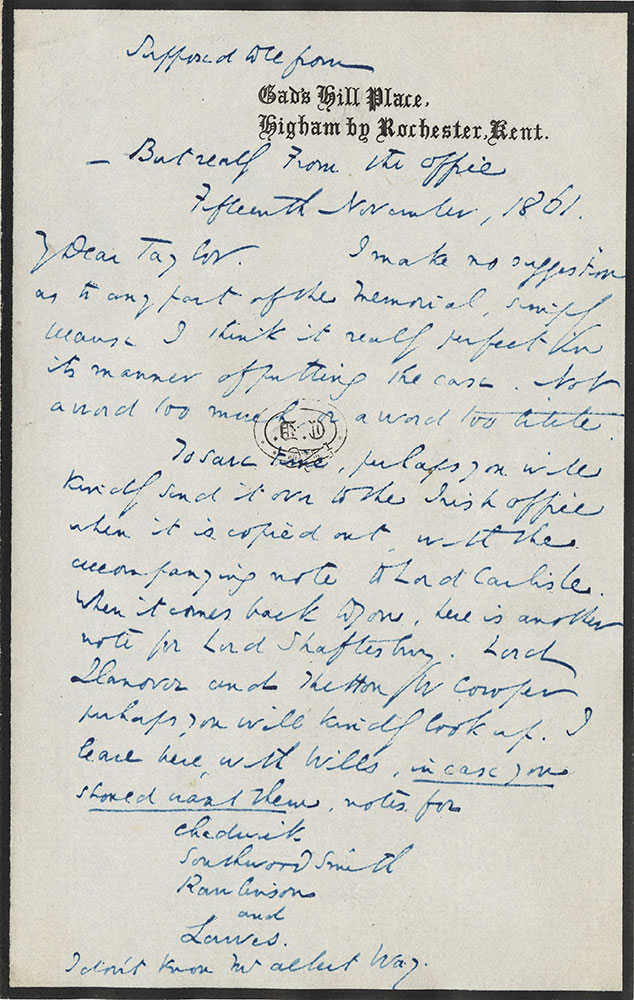 Supposed to be from
Gad's Hill Place,
Higham by Rochester, Kent.
— But really From the office
Fifteenth November, 1861.
My Dear Taylor. I make no suggestion
as to any part of the Memorial, simply
because I think it really perfect in
its manner of putting the case. Not
a word too much, or a word too little.
To save time, perhaps you will
kindly send it over to the Irish office
when it is copied out, with the
accompanying note to Lord Carlisle.
When it comes back to you, here is another
note for Lord Shaftesbury. Lord
Llanover and the Hon Cowper
perhaps you will kindly look up. I
leave here, with Wills, in case you
should want them, notes for
Chadwick
Southwood Smith
Rawlinson
and
Lawes.
I don't know Mr Albert Way.